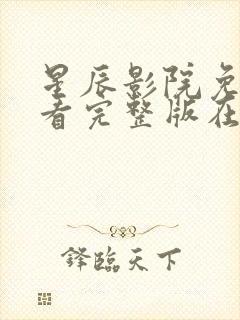 星辰影院免
看完整版在
锋临天下